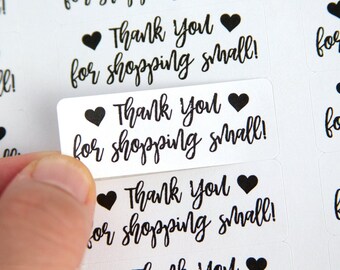 Thank You
for shopping small!
Thank You
for shopping small!
Thank You
for shopping small!
Thank You